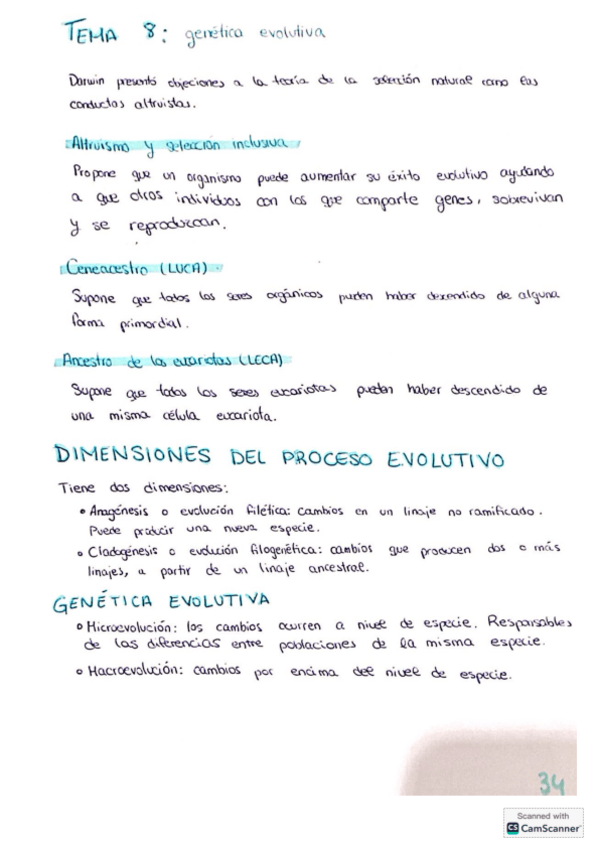 TEMA 8: genética evolutiva
Darwin presentó objeciones a la teoría de la selección natural como las
conductas altruistas.
Altruismo y selección inclusiva
Propone que un organismo puede aumentar su éxito evolutivo ayudando
a que otros individuos con los que comparte genes, sobrevivan
y se reproduzcan.
Ceneacestro (LUCA)
Supone que todos los seres orgánicos pueden haber descendido de alguna
forma primordial.
Ancestro de los eucariotas (LECA)
Supone que todos los seres eucariotas pueden haber descendido de
una misma célula eucariota.
DIMENSIONES DEL PROCESO EVOLUTIVO
Tiene dos dimensiones:
• Anagénesis o evolución filética: cambios en un linaje no ramificado.
Puede producir una nueva especie.
• Cladogénesis o evolución filogenética: cambios que producen dos o más
linajes, a partir de un linaje ancestral.
GENÉTICA EVOLUTIVA
• Microevolución: los cambios ocurren a nivel de especie. Responsables
de las diferencias entre poblaciones de la misma especie.
• Macroevolución: cambios por encima del nivel de especie.
34
Scanned with
CS CamScanner